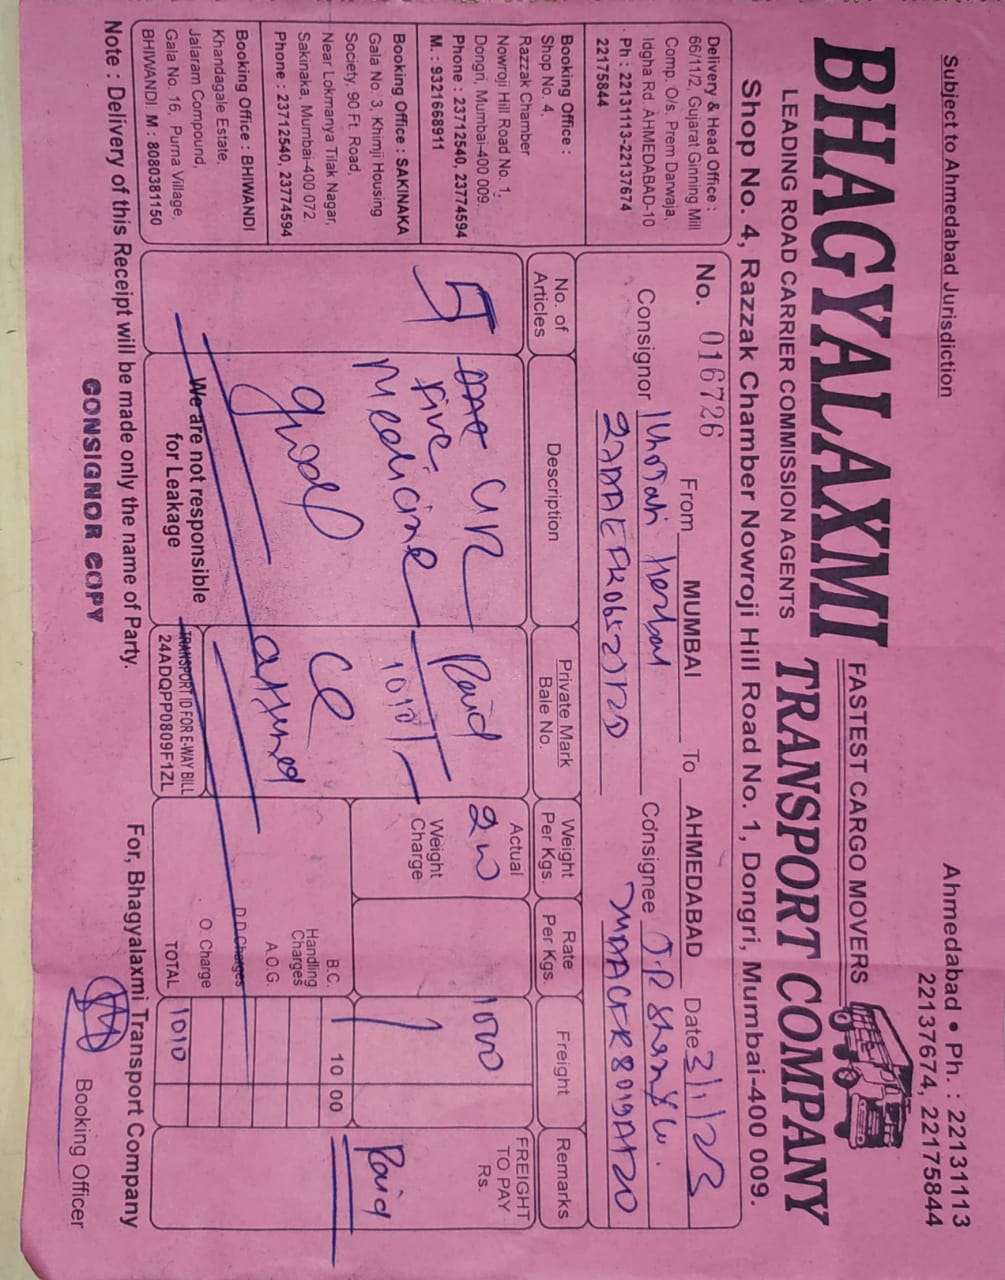 Subject to Ahmedabad Jurisdiction
Ahmedabad • Ph. : 22131113
22137674, 22175844
BHAGYALAXMI
FASTEST CARGO MOVERS
TRANSPORT COMPANY
LEADING ROAD CARRIER COMMISSION AGENTS
Shop No. 4, Razzak Chamber Nowroji Hill Road No. 1, Dongri, Mumbai-400 009.
Delivery & Head Office :
66/11/2, Gujarat Ginning Mill
Comp. O/s. Prem Darwaja,
Idgha Rd. AHMEDABAD-10
Ph : 22131113-22137674
22175844
Booking Office :
Shop No. 4,
Razzak Chamber
Nowroji Hill Road No. 1,
Dongri, Mumbai-400 009.
Phone : 23712540, 23774594
M. : 9321668911
Booking Office : SAKINAKA
Gala No. 3, Khimji Housing
Society, 90 Ft. Road,
Near Lokmanya Tilak Nagar,
Sakinaka, Mumbai-400 072.
Phone : 23712540, 23774594
Booking Office : BHIWANDI
Khandagale Estate,
Jalaram Compound,
Gala No. 16, Purna Village,
BHIWANDI. M : 8080381150
No. 016726 From MUMBAI To AHMEDABAD Date 3/1/23
Consignor herbal Consignee
No. of Articles
Description
Private Mark Bale No.
Weight Per Kgs.
Rate Per Kgs.
Freight
Remarks
5
five
Medicine
good
Paid
1010/-
CC
attached
Actual
Weight Charge
1000
FREIGHT TO PAY Rs.
Paid
B.C. 10 00
Handling Charges
A.O.G.
D.D.Charges
O. Charge
TOTAL 1010
We are not responsible
for Leakage
TRANSPORT ID FOR E-WAY BILL
24ADQPP0809F1ZL
Note : Delivery of this Receipt will be made only the name of Party.
For, Bhagyalaxmi Transport Company
CONSIGNOR COPY
Booking Officer